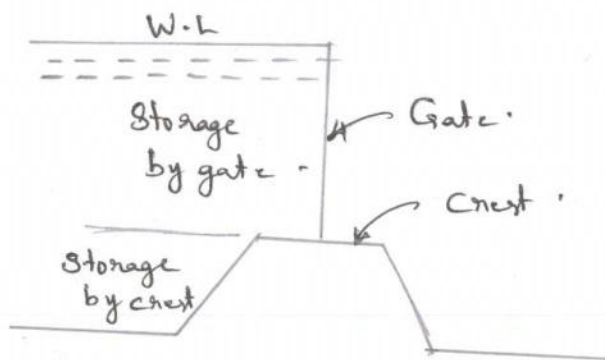 W.L
Storage
by gate
Gate.
Crest.
Storage
by crest